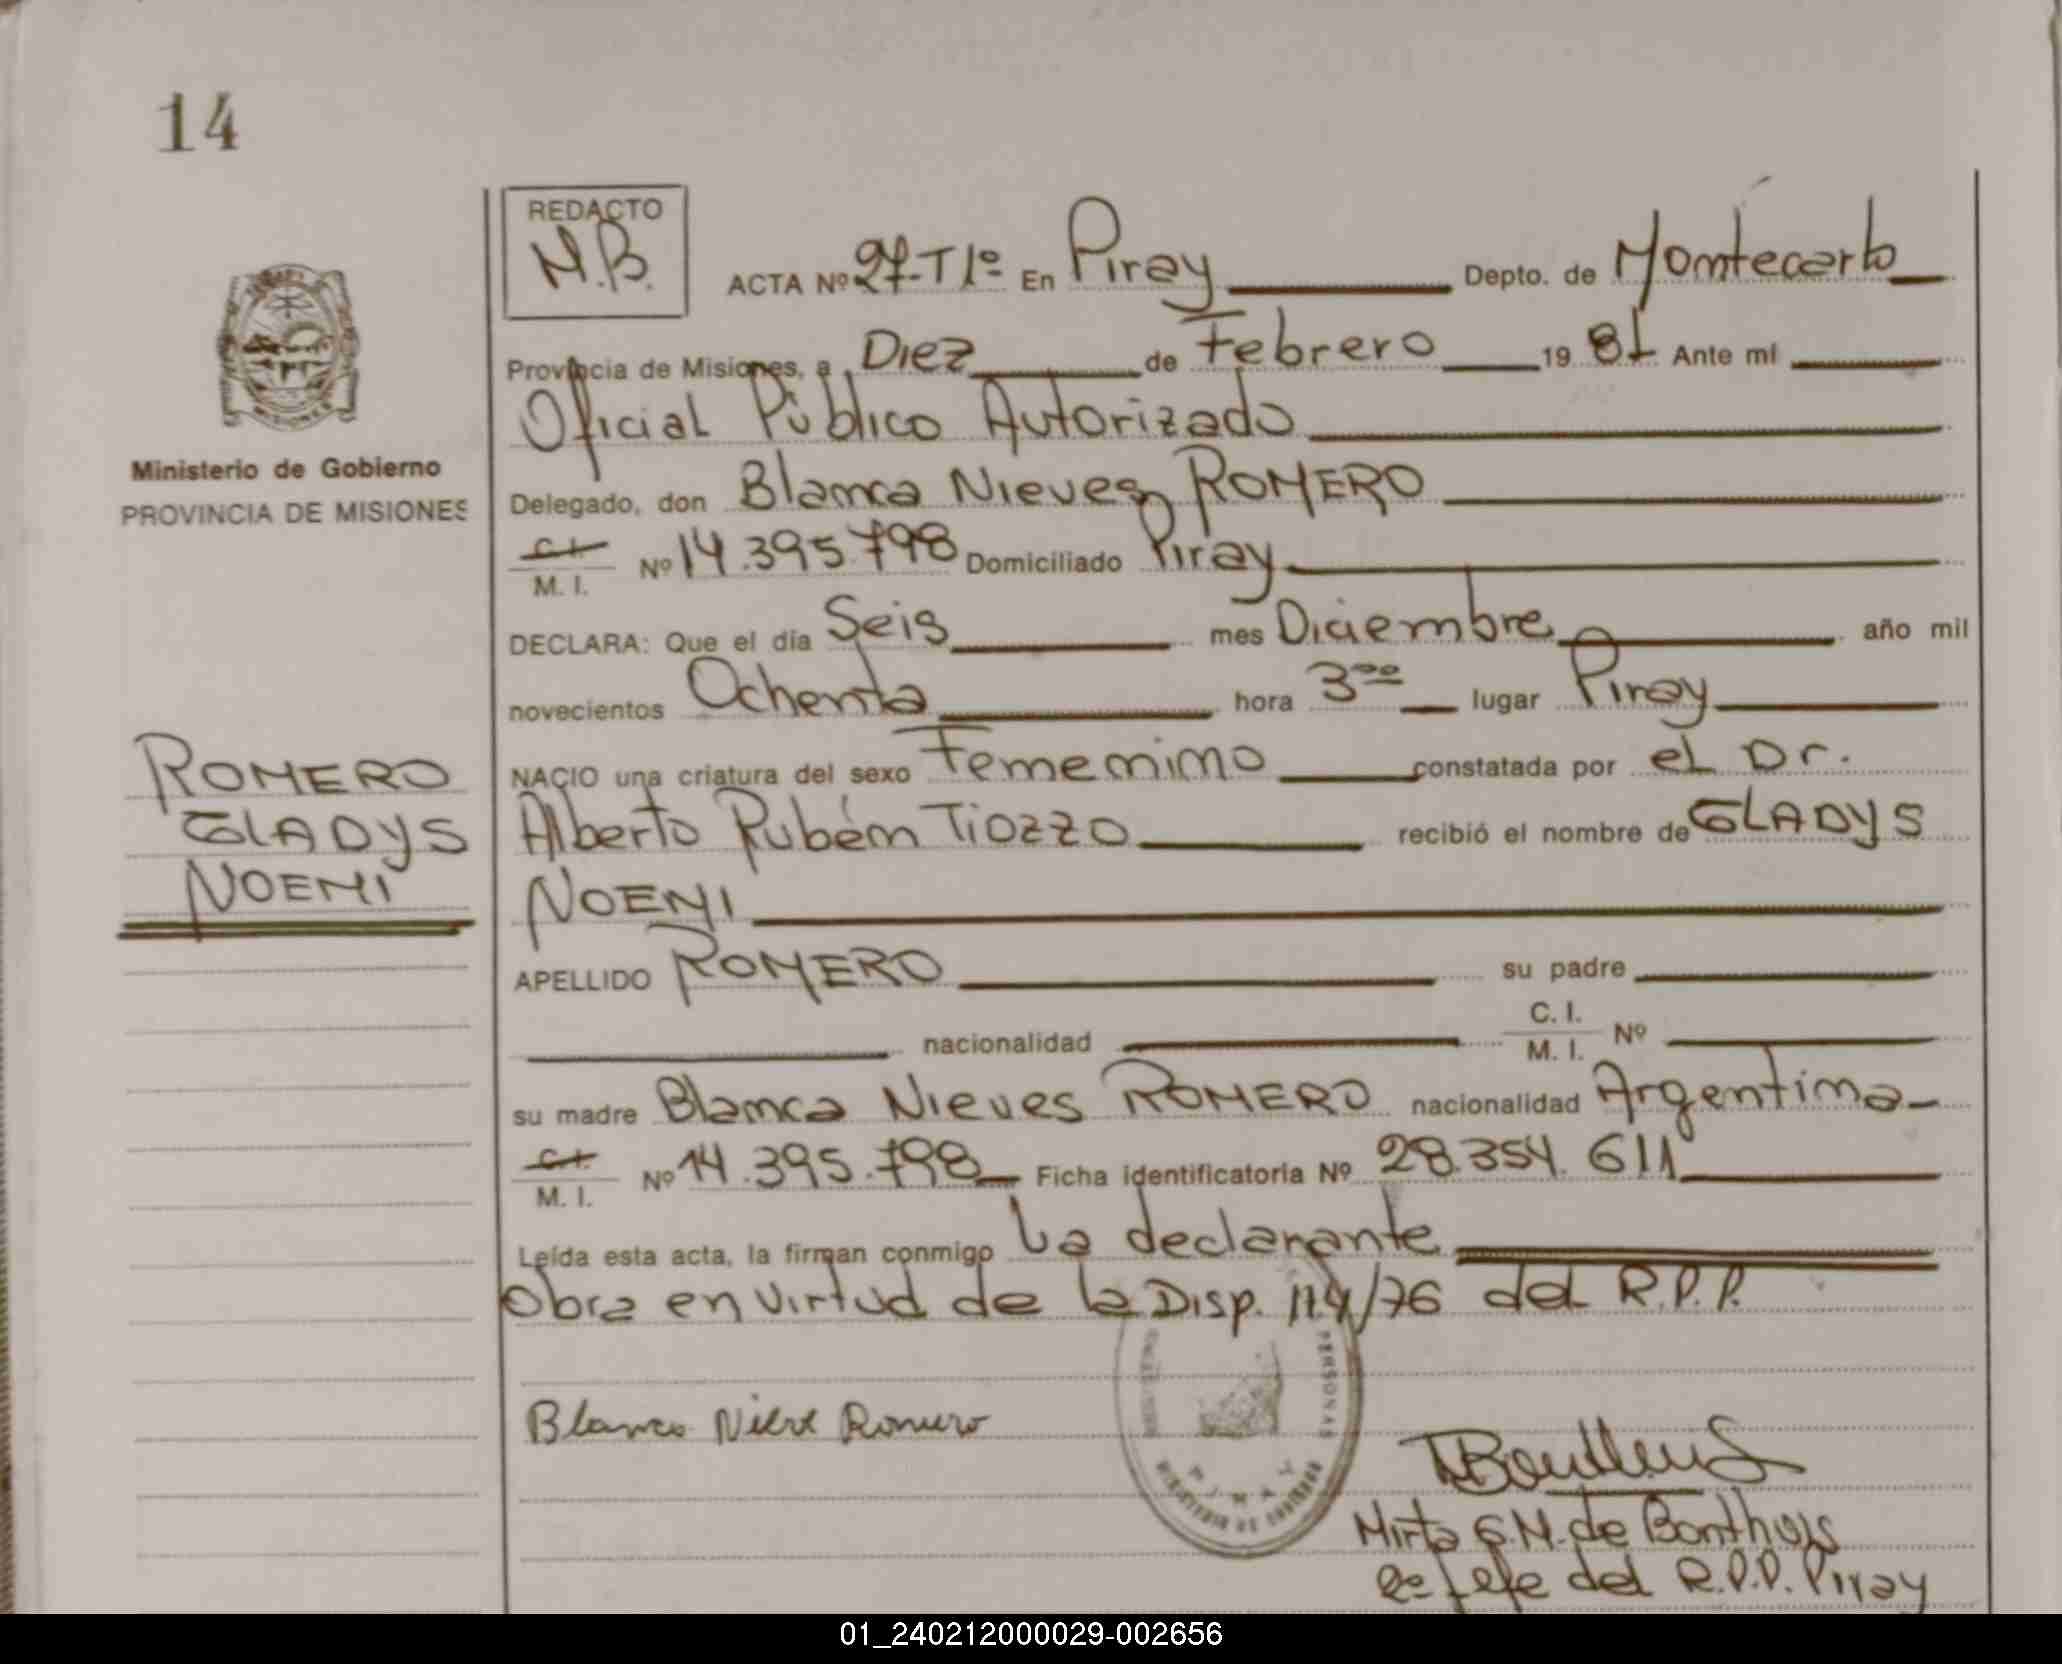 14
REDACTO
M.B.
ACTA Nº 27-T1º En Piray Depto. de Montecarlo
Provincia de Misiones, a Diez de Febrero 19 81 Ante mi
Oficial Público Autorizado
Ministerio de Gobierno
PROVINCIA DE MISIONES
Delegado, don Blanca Nieves ROMERO
C.I. M. I. Nº 14.395.798 Domiciliado Piray
DECLARA: Que el día Seis mes Diciembre año mil
novecientos Ochenta hora 3ºº lugar Piray
ROMERO
GLADYS
NOEMI
NACIO una criatura del sexo Femenino constatada por el Dr.
Alberto Rubén Tiozzo recibió el nombre de GLADYS
NOEMI
APELLIDO ROMERO su padre
nacionalidad C. I. M. I. Nº
su madre Blanca Nieves ROMERO nacionalidad Argentina
C.I. M. I. Nº 14.395.798 Ficha identificatoria Nº 28.354.611
Leída esta acta, la firman conmigo La declarante
Obra en virtud de la Disp. 114/76 del R.P.P.
PERSONAS
PIRAY
Blanca Nieve Romero
Mirta G.M. de
2º Jefe del R.P.P. Piray
01_240212000029-002656